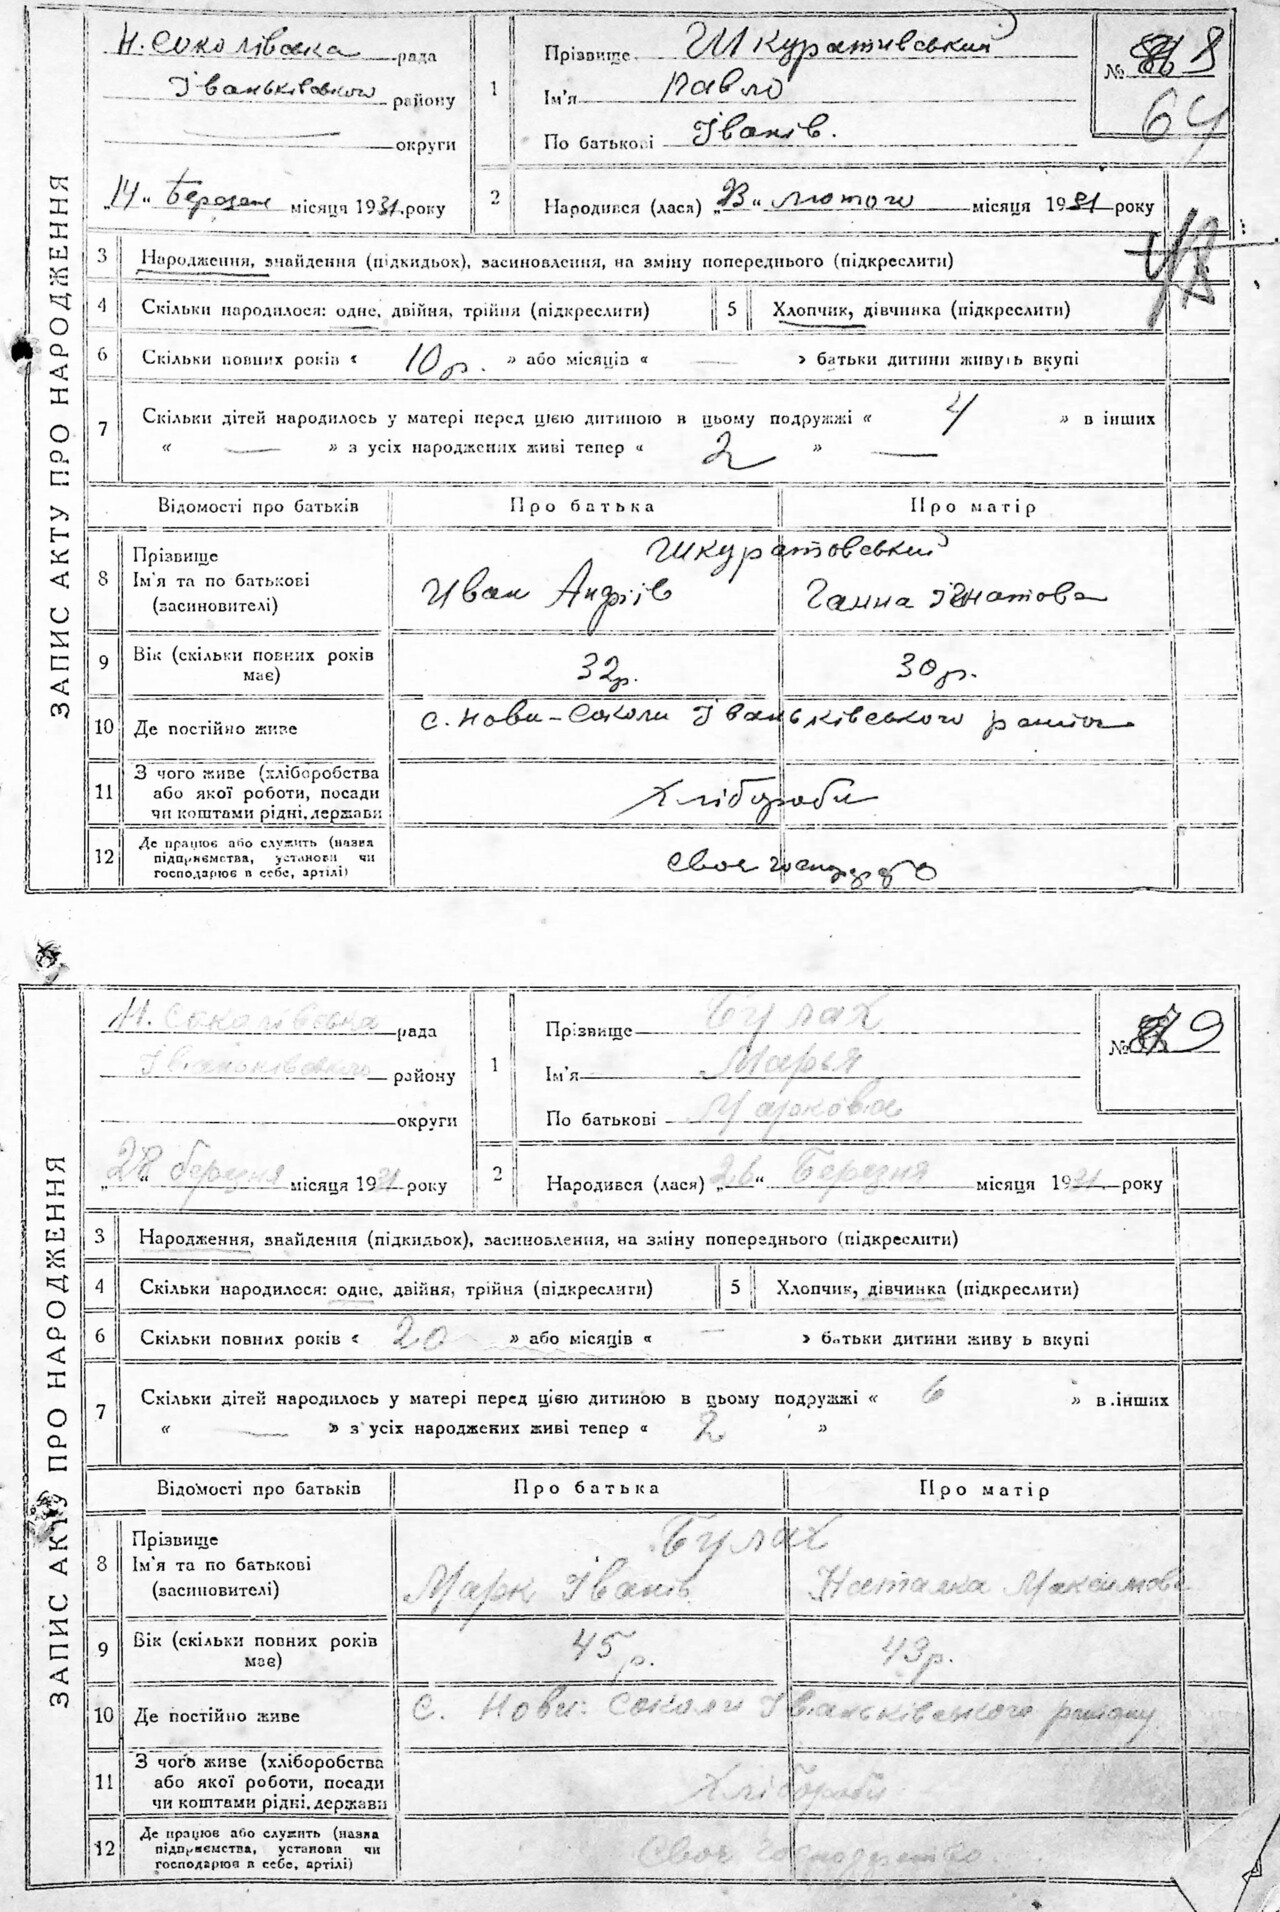 ЗАПИС АКТУ ПРО НАРОДЖЕННЯ
Н. Соколівська рада
Іваньківського району
округи
„14“ Березня місяця 1931 року
1 Прізвище Шкуративський
Ім'я Павло
По батькові Іванів.
№ 8
64
2 Народився (лася) „23“ лютого місяця 1931 року
3 Народження, знайдення (підкидьох), засиновлення, на зміну попереднього (підкреслити)
4 Скільки народилося: одне, двійня, трійня (підкреслити)
5 Хлопчик, дівчинка (підкреслити)
6 Скільки повних років « 10 р. » або місяців « — » батьки дитини живуть вкупі
7 Скільки дітей народилось у матері перед цією дитиною в цьому подружжі « 4 » в інших
« — » з усіх народжених живі тепер « 2 » —
Відомості про батьків Про батька Про матір
8 Прізвище Шкуратовський
Ім'я та по батькові Иван Андріів Ганна Ігнатова
(засиновителі)
9 Вік (скільки повних років має) 32р. 30р.
10 Де постійно живе с. Нови-Соколи Іваньківського району
11 З чого живе (хліборобства
або якої роботи, посади Хлібороби
чи коштами рідні, держави
12 Де працює або служить (назва
підприємства, установи чи своє господарство
господарює в себе, артілі)
ЗАПИС АКТУ ПРО НАРОДЖЕННЯ
Н. Соколівська рада
Іваньківського району
округи
„28“ березня місяця 1931 року
1 Прізвище Булах
Ім'я Марья
По батькові Маркова
№ 9
2 Народився (лася) „26“ Березня місяця 1931 року
3 Народження, знайдення (підкидьок), засиновлення, на зміну попереднього (підкреслити)
4 Скільки народилося: одне, двійня, трійня (підкреслити)
5 Хлопчик, дівчинка (підкреслити)
6 Скільки повних років « 20 » або місяців « — » батьки дитини живу ь вкупі
7 Скільки дітей народилось у матері перед цією дитиною в цьому подружжі « 6 » в інших
« — » з усіх народжених живі тепер « 2 »
Відомості про батьків Про батька Про матір
8 Прізвище Булах
Ім'я та по батькові Марк Іванів Наталка Максимова
(засиновителі)
9 Вік (скільки повних років має) 45 р. 43р.
10 Де постійно живе с. Нови-Соколи Іваньківського району
11 З чого живе (хліборобства
або якої роботи, посади Хлібороби
чи коштами рідні, держави
12 Де працює або служить (назва
підприємства, установи чи своє господарство
господарює в себе, артілі)